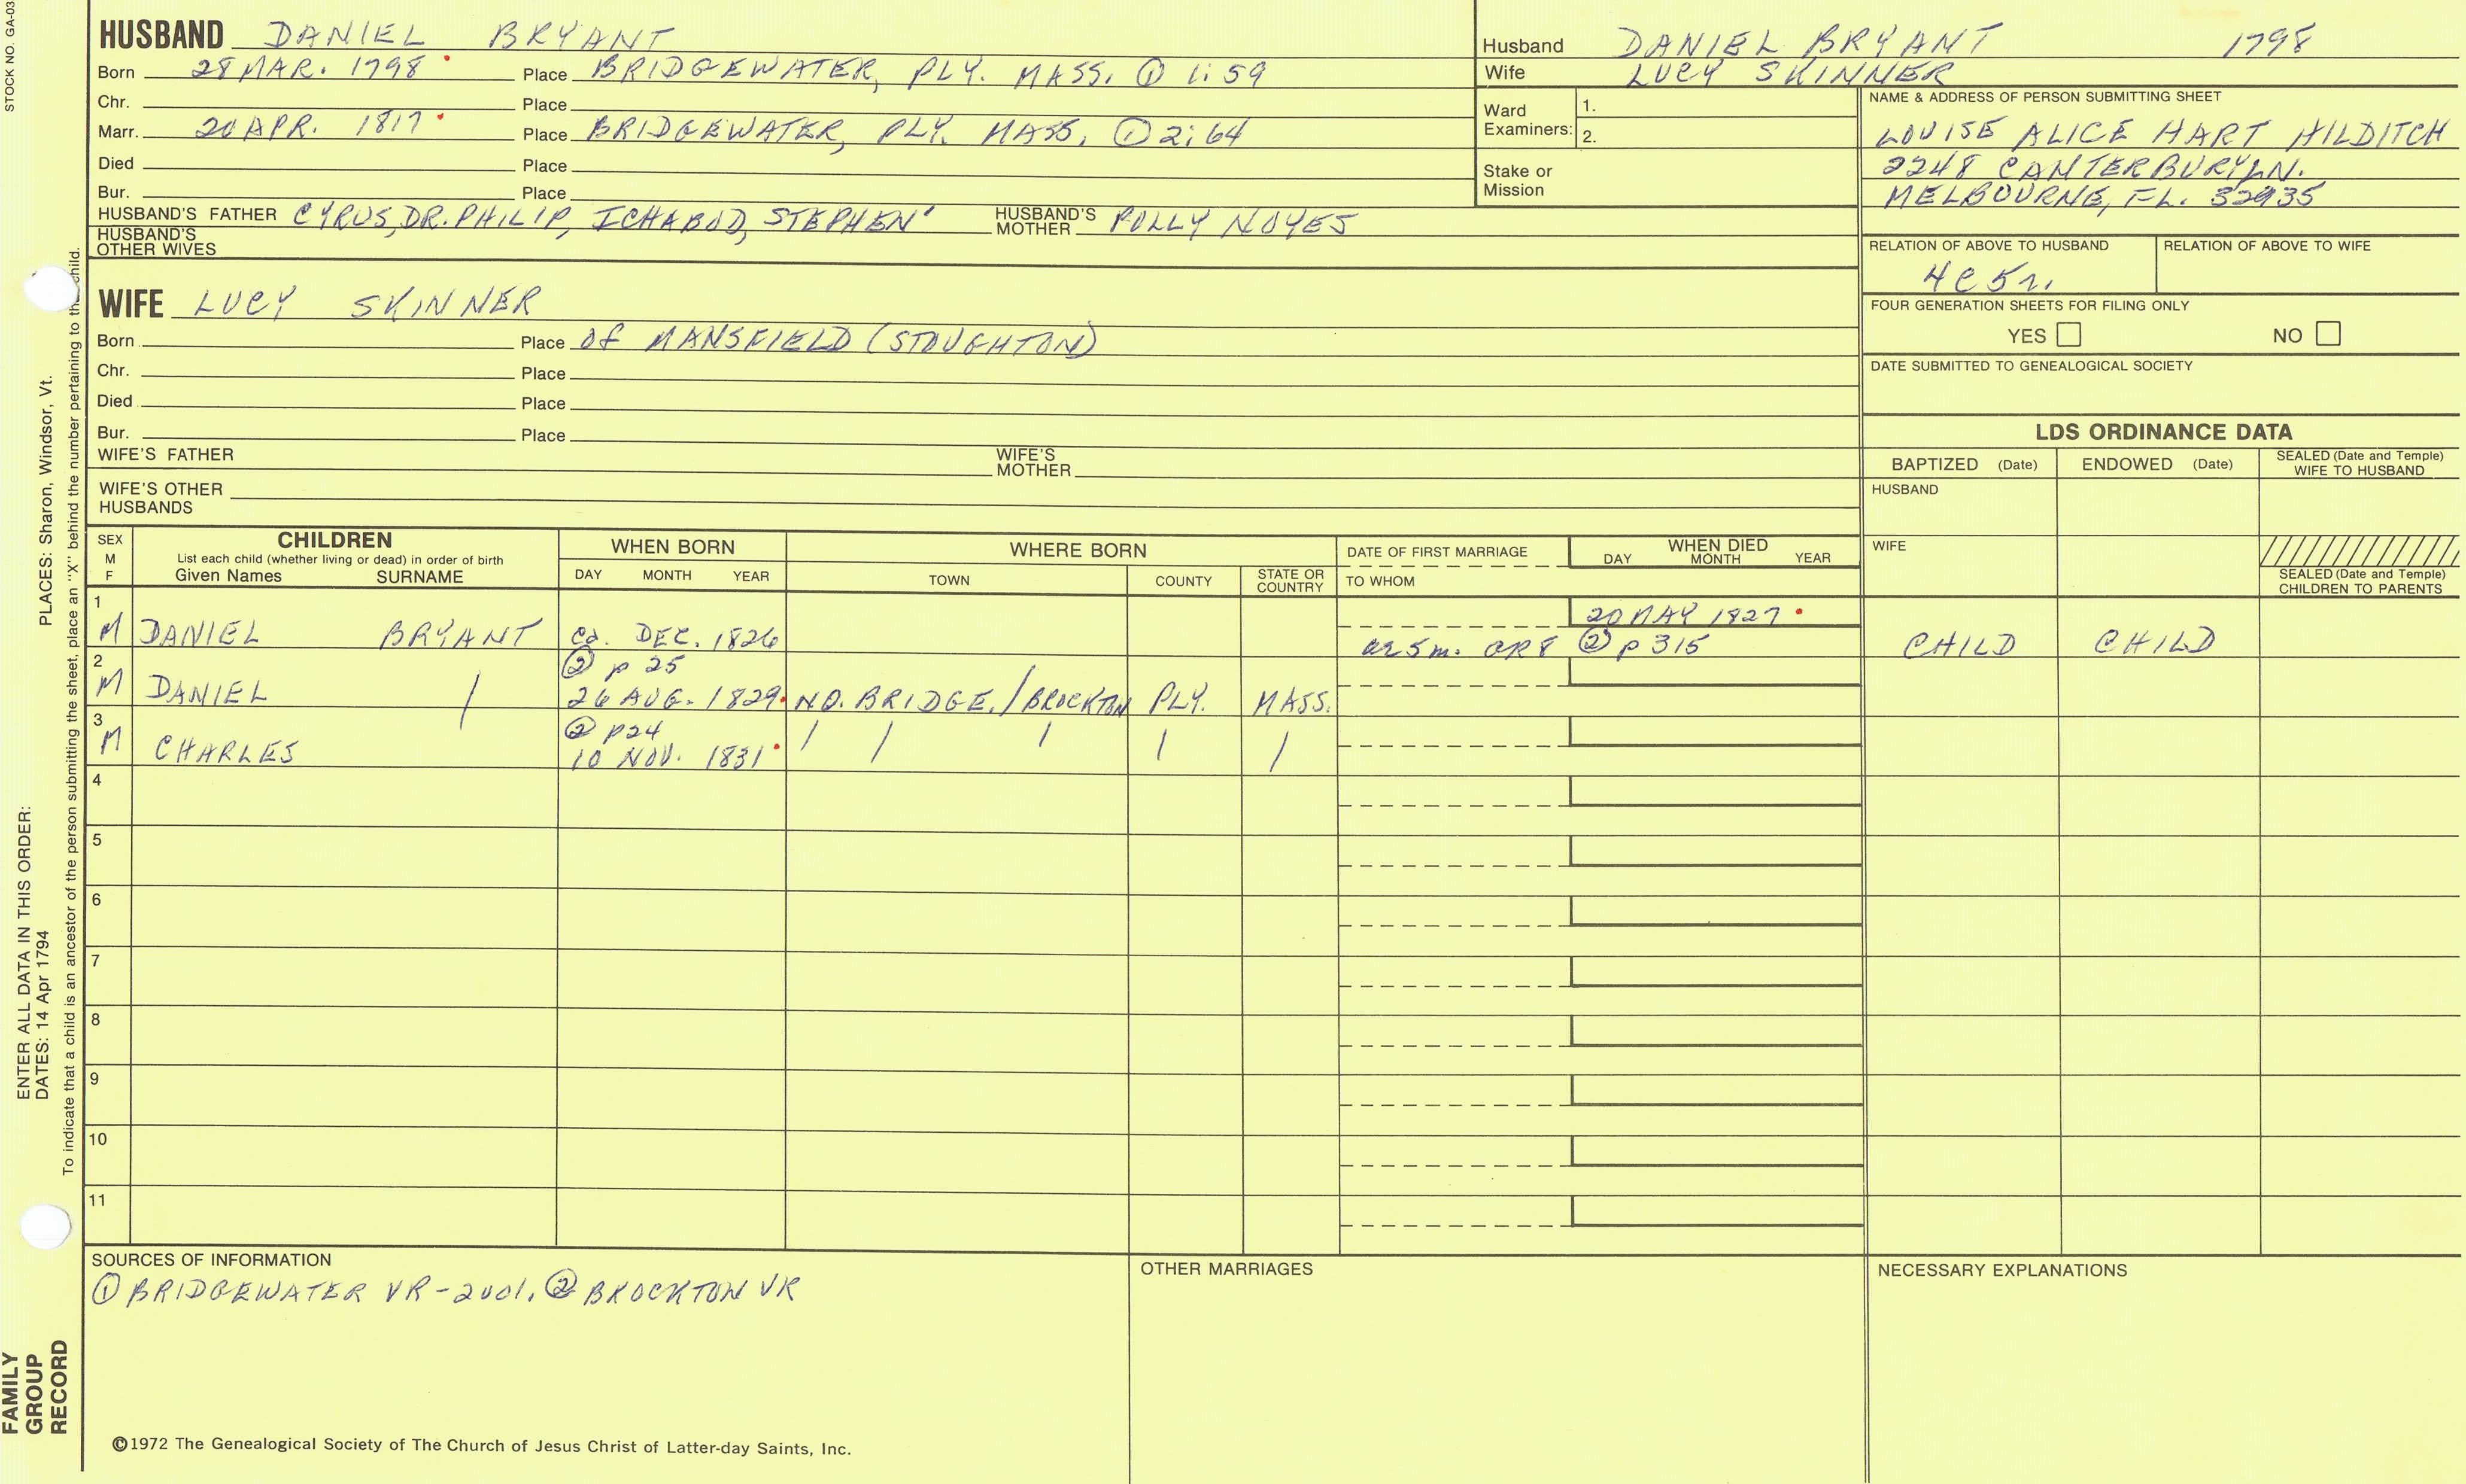 STOCK NO. GA-03
HUSBAND DANIEL BRYANT
Born 28 MAR. 1798 Place BRIDGEWATER, PLY. MASS. ① 1:59
Chr. Place
Marr. 20 APR. 1817 Place BRIDGEWATER, PLY. MASS. ① 2:64
Died Place
Bur. Place
HUSBAND'S FATHER CYRUS, DR. PHILIP, ICHABOD, STEPHEN' HUSBAND'S MOTHER POLLY NOYES
HUSBAND'S OTHER WIVES
Husband DANIEL BRYANT 1798
Wife LUCY SKINNER
Ward Examiners: 1.
2.
Stake or Mission
NAME & ADDRESS OF PERSON SUBMITTING SHEET
LOUISE ALICE HART HILDITCH
2248 CANTERBURY LN.
MELBOURNE, FL. 32935
RELATION OF ABOVE TO HUSBAND RELATION OF ABOVE TO WIFE
4C5r.
FOUR GENERATION SHEETS FOR FILING ONLY
YES NO
DATE SUBMITTED TO GENEALOGICAL SOCIETY
WIFE LUCY SKINNER
Born Place OF MANSFIELD (STOUGHTON)
Chr. Place
Died Place
Bur. Place
WIFE'S FATHER WIFE'S MOTHER
WIFE'S OTHER HUSBANDS
LDS ORDINANCE DATA
BAPTIZED (Date) ENDOWED (Date) SEALED (Date and Temple) WIFE TO HUSBAND
HUSBAND
WIFE
SEALED (Date and Temple) CHILDREN TO PARENTS
SEX M F
CHILDREN
List each child (whether living or dead) in order of birth
Given Names SURNAME
WHEN BORN
DAY MONTH YEAR
WHERE BORN
TOWN COUNTY STATE OR COUNTRY
DATE OF FIRST MARRIAGE
TO WHOM
WHEN DIED
DAY MONTH YEAR
1 20 MAY 1827
M DANIEL BRYANT ca. DEC. 1826 ae 5m. CR8 ② p 315 CHILD CHILD
2 ② p 25
M DANIEL / 26 AUG. 1829 NO. BRIDGE./BROCKTON PLY. MASS.
3 ② p24
M CHARLES 10 NOV. 1831 / / / / /
4
5
6
7
8
9
10
11
SOURCES OF INFORMATION
① BRIDGEWATER VR-2vol. ② BROCKTON VR
OTHER MARRIAGES
NECESSARY EXPLANATIONS
©1972 The Genealogical Society of The Church of Jesus Christ of Latter-day Saints, Inc.
FAMILY GROUP RECORD
ENTER ALL DATA IN THIS ORDER:
DATES: 14 Apr 1794
PLACES: Sharon, Windsor, Vt.
To indicate that a child is an ancestor of the person submitting the sheet, place an "X" behind the number pertaining to the child.